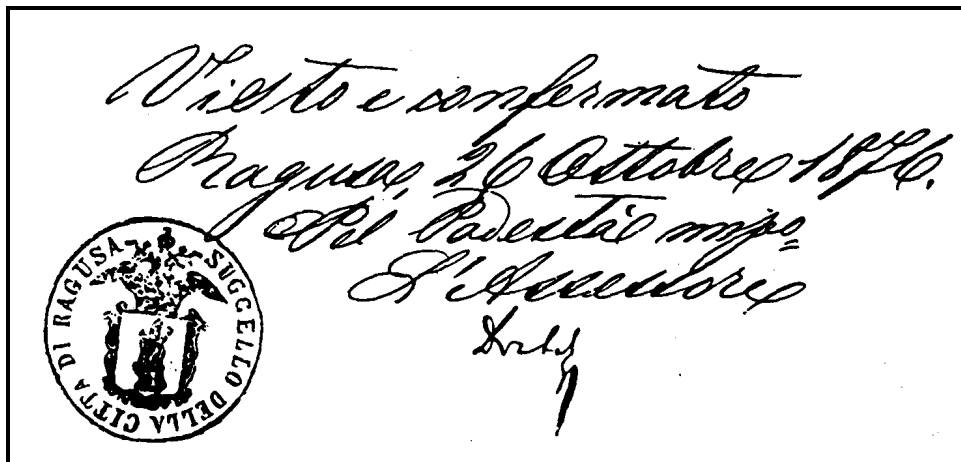 Visto e confermato
Ragusa, 26 Ottobre 1876.
Pel Podestà
L'Assessore
SUGGELLO DELLA CITTA DI RAGUSA